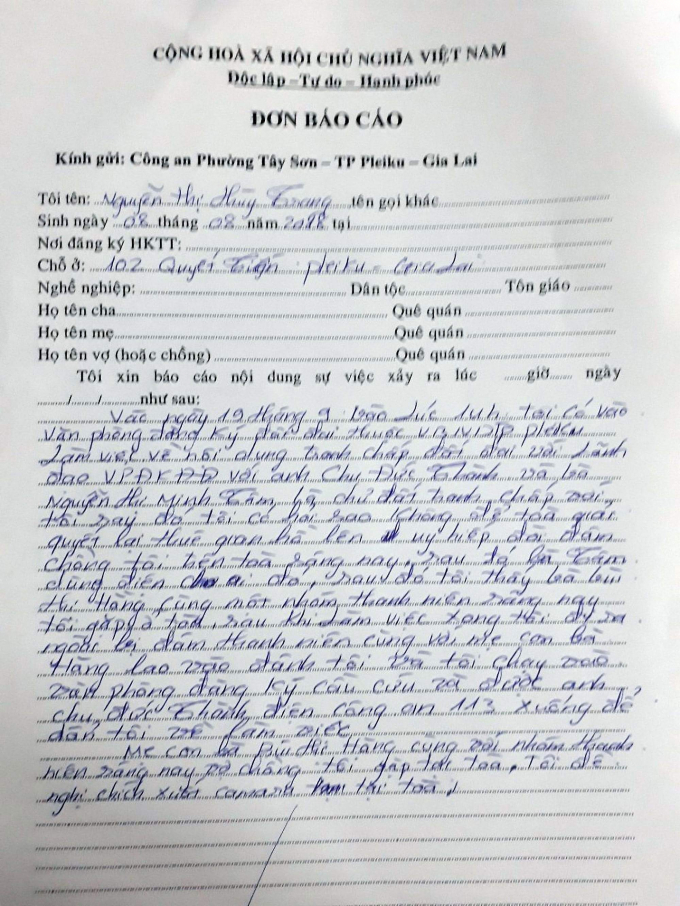 CỘNG HOÀ XÃ HỘI CHỦ NGHĨA VIỆT NAM
Độc lập – Tự do – Hạnh phúc
ĐƠN BÁO CÁO
Kính gửi: Công an Phường Tây Sơn – TP Pleiku – Gia Lai
Tôi tên: Nguyễn Thị Thùy Trang tên gọi khác
Sinh ngày 08 tháng 08 năm tại
Nơi đăng ký HKTT:
Chỗ ở: 102 Quyết Tiến pleiku - Gia Lai
Nghề nghiệp: Dân tộc Tôn giáo
Họ tên cha Quê quán
Họ tên mẹ Quê quán
Họ tên vợ (hoặc chồng) Quê quán
Tôi xin báo cáo nội dung sự việc xảy ra lúc giờ ngày
/ / như sau:
Vào ngày 19 tháng 9 vào lúc tôi có vào
văn phòng đăng ký đất đai thuộc pleiku
làm việc về nội dung tranh chấp đất đai với Lãnh
đạo VPĐKĐĐ với anh Chu Đức Thành và bà
Nguyễn Thị Minh Tâm, bà chủ đất tranh chấp với
tôi, tôi có hỏi sao không để toà giải
quyết lại thuê giang hồ lên uy hiếp đòi đấm
chồng tôi bên toà sáng nay, sau đó bà Tâm
cũng điện cho ai đó, sau đó tôi thấy bà Bùi
Thị Hằng cùng một nhóm thanh niên sáng nay
tôi gặp ở toà, sau khi làm việc xong tôi đi ra
ngoài bị đám thanh niên cùng với mẹ con bà
Hằng lao vào đánh tôi và tôi chạy vào
văn phòng đăng ký cầu cứu và được anh
chu đức Thành điện công an 113 xuống để
dẫn tôi về làm việc
Mẹ con bà Bùi Thị Hằng cùng với nhóm thanh
niên sáng nay vợ chồng tôi gặp trên toà, Tôi đề
nghị trích xuất camara tại toà,